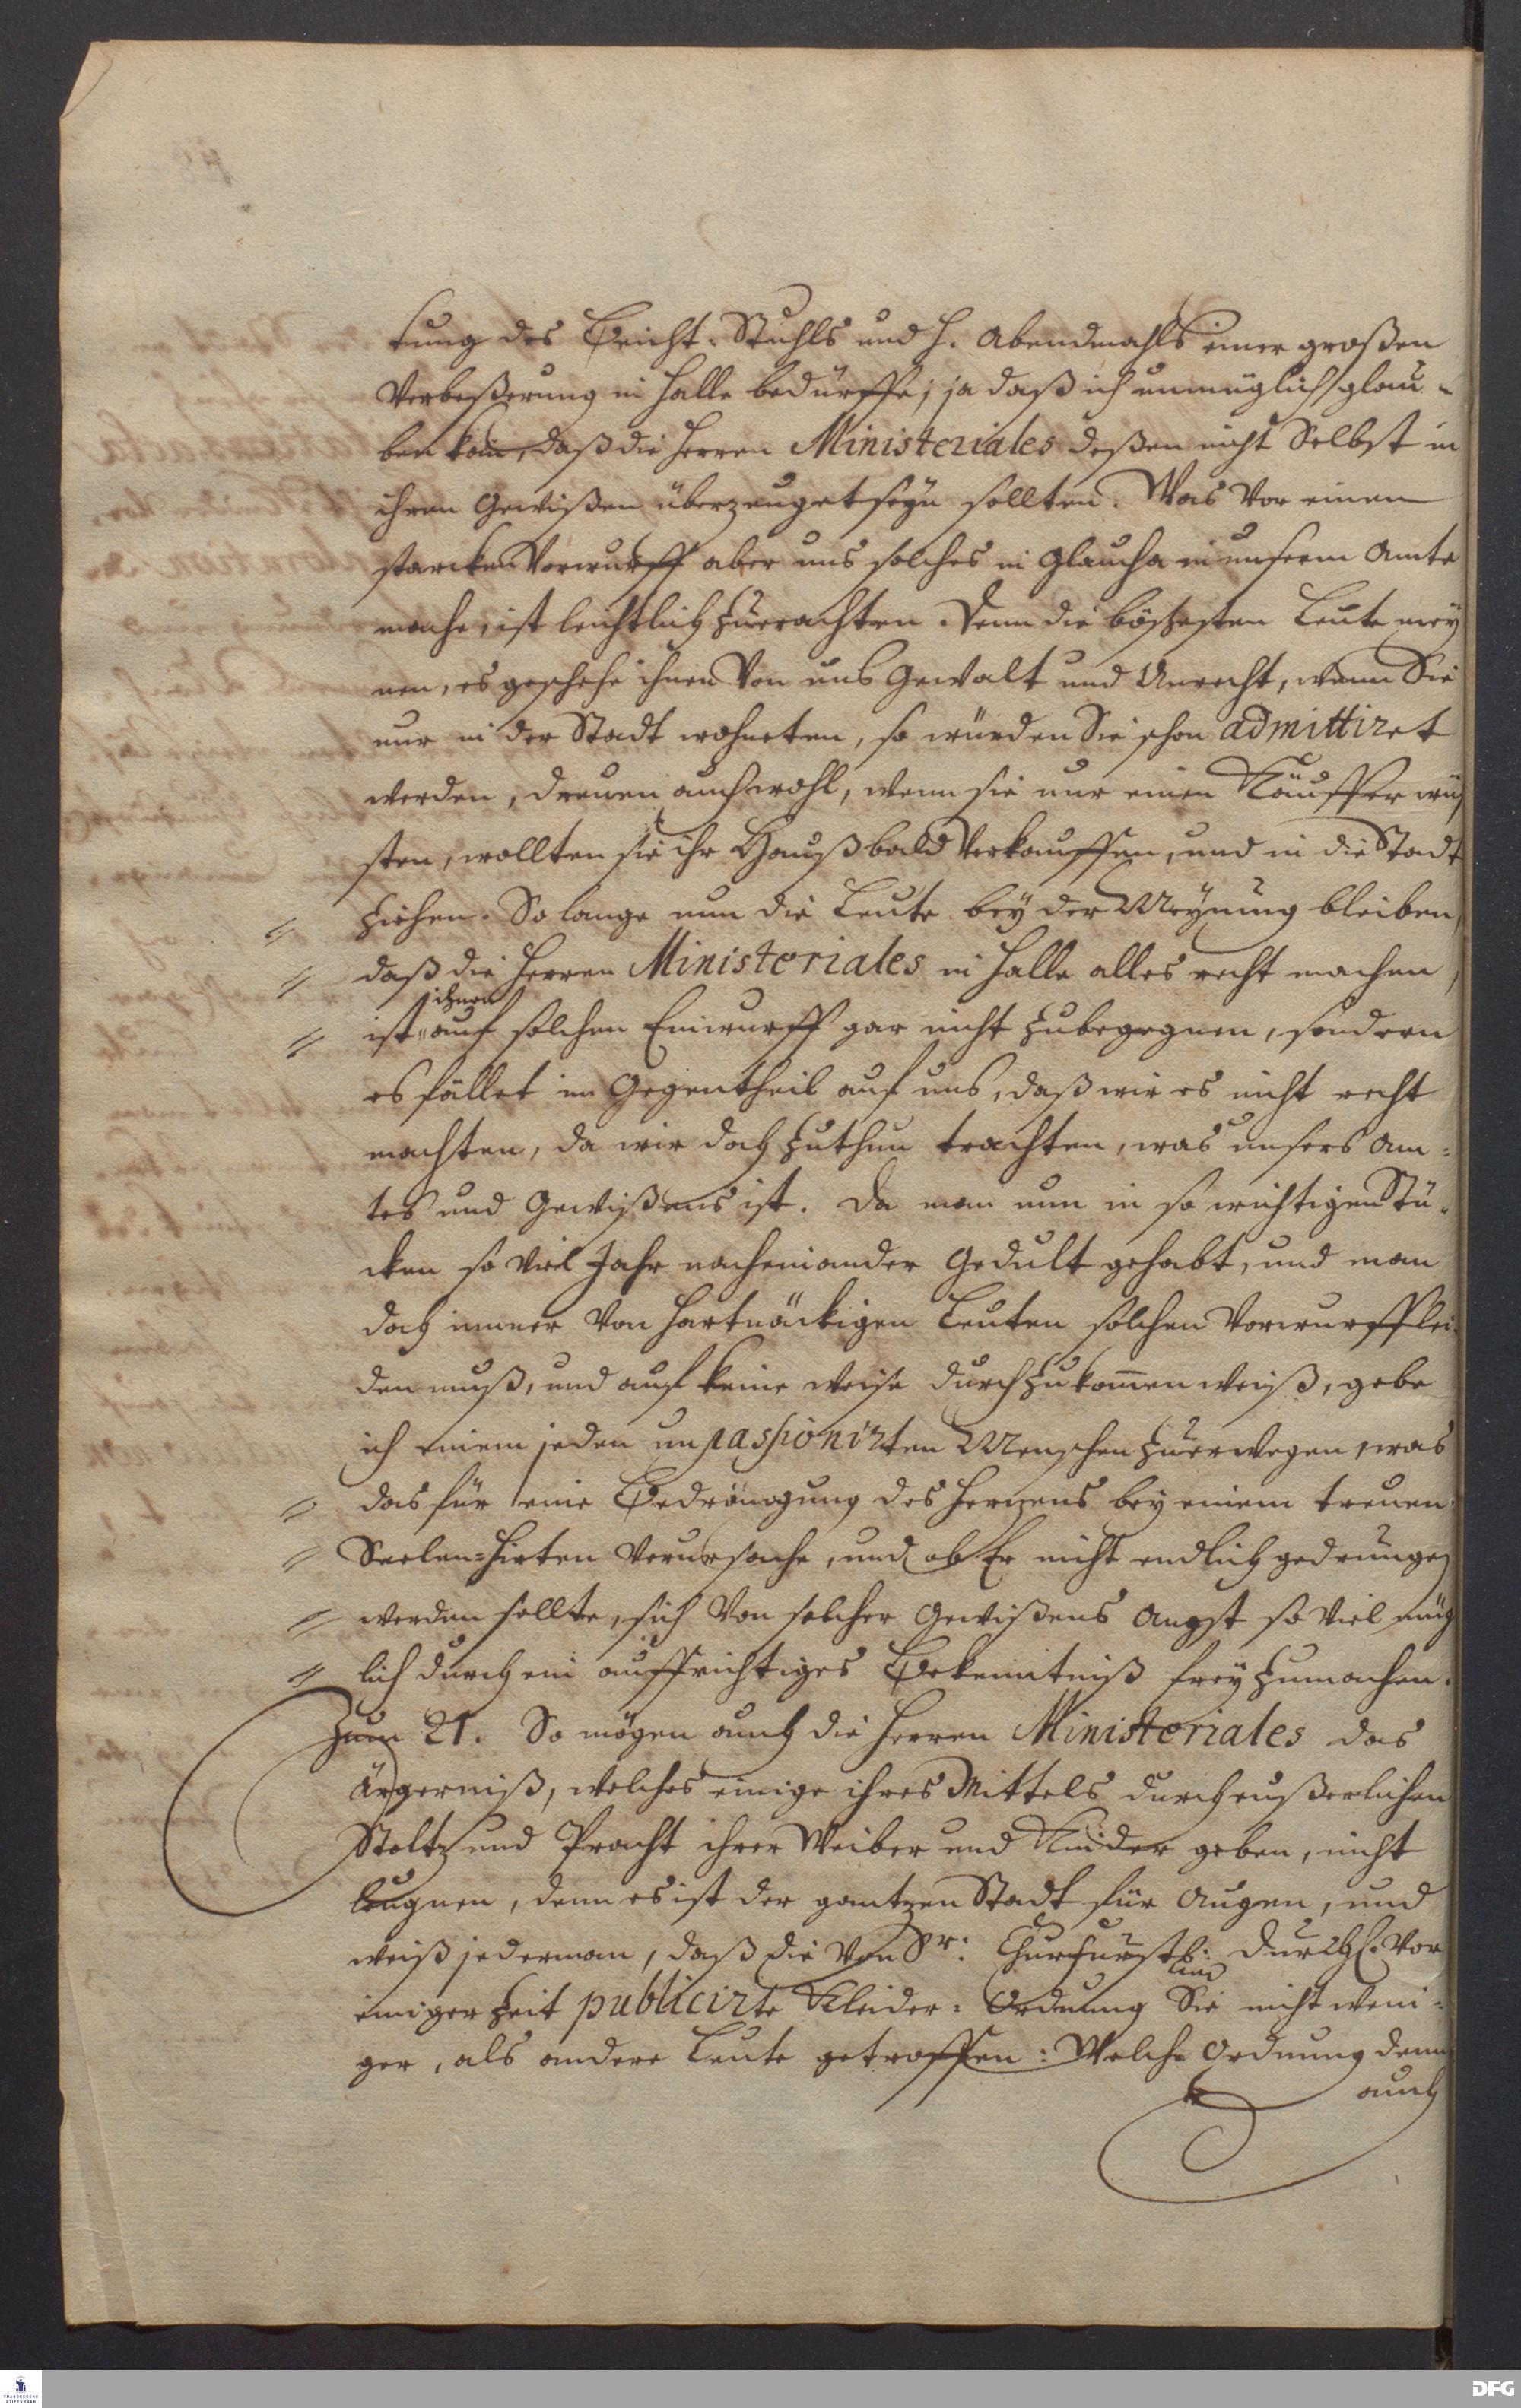 tung des Beicht-Stuhls und H. Abendmahls einer großen
Verbeßerung in Halle bedürffe; ja daß ich unmüglich glau-
ben kan, daß die Herren Ministeriales deßen nicht Selbst in
ihren Gewißen überzeuget seyn sollten. Was vor einen
starcken Vorwurff aber uns solches in Glaucha in unserm Amte
mache, ist leichtlich zuerachten. Denn die bösesten Leute mey
nen, es geschehe ihnen Von uns Gewalt und Unrecht, wenn Sie
nur in der Stadt wohneten, so würden Sie schon admittiret
werden, dreuen auch wohl, wenn sie nur einen Käuffer wüs
sten, wollten sie ihr Hauß bald Verkauffen, und in die Stadt
ziehen. So lange nun die Leute bey der Meynung bleiben,
daß die Herren Ministeriales in Halle alles recht machen,
ihnen
ist auf solchen Einwurff gar nicht zubegegnen, sondern
es fället im Gegentheil auf uns, daß wir es nicht recht
machten, da wir doch zuthun trachten, was unsers Am-
tes und Gewißens ist. Da man nun in so wichtigen Stü-
cken so viel Jahr nacheinander Gedult gehabt, und man
doch immer Von hartnäckigen Leuten solchen Vorwurff lei-
den muß, und auf keine weise durchzukommen weiß, gebe
ich einem jeden unpassionirten Menschen zuerwegen, was
das für eine Bedrängung des Hertzens bey einem treuen
Seelen-Hirten Verursache, und ob Er nicht endlich gedrungen
werden sollte, sich Von solcher Gewißens Angst so viel müg
lich durch ein auffrichtiges Bekenntniß frey zumachen.
Zum 21. So mögen auch die Herren Ministeriales das
Ärgerniß, welches einige ihres Mittels durch eußerlichen
Stoltz und Pracht ihrer Weiber und Kinder geben, nicht
leugnen, denn es ist der gantzen Stadt für Augen, und
weiß jederman, daß die Von Sr. Churfürstl. Durchl. Vor
einiger Zeit publicirte Kleider-Ordnung Sie nicht weni-
ger, als andere Leute getroffen: Welche Ordnung denn
auch
DFG
FRANCKESCHE
STIFTUNGEN